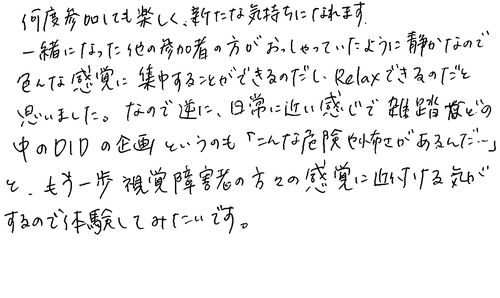 何度参加しても楽しく、新たな気持ちになれます。
一緒になった他の参加者の方がおっしゃっていたように静かなので
色んな感覚に集中することができるのだし、Relaxできるのだと
思いました。なので逆に、日常に近い感じで雑踏などの
中のDIDの企画というのも「こんな危険や怖さがあるんだ…」
と、もう一歩視覚障害者の方々の感覚に近付ける気が
するので体験してみたいです。